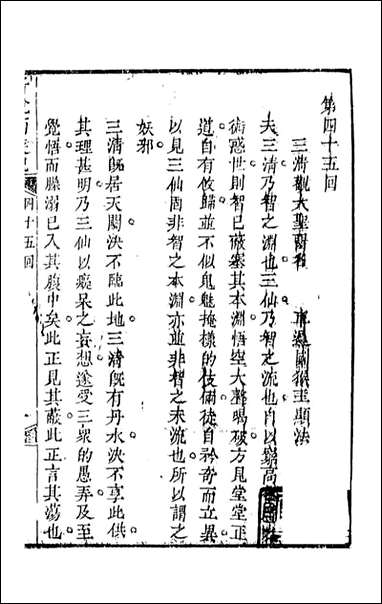 第四十五回
三清觀大聖留名　車遲國猴王顯法
夫三清乃智之淵也三仙乃智之流也自以為高
術惑世則智已蔽塞其本淵悟空大整喝破方見堂堂正
道自有攸歸並不似鬼魅掩樣的伎倆徒自矜奇而立異
以見三仙固非智之本淵亦並非智之未流也所以謂之
妖邪
三清既居天闕決不臨此地三清既有丹水決不享此供
其理甚明乃三仙以癡呆之妄想遂受三衆的愚弄及至
覺悟而臊溺已入其腹中矣此正見其蔽此正言其蕩也
四十五回